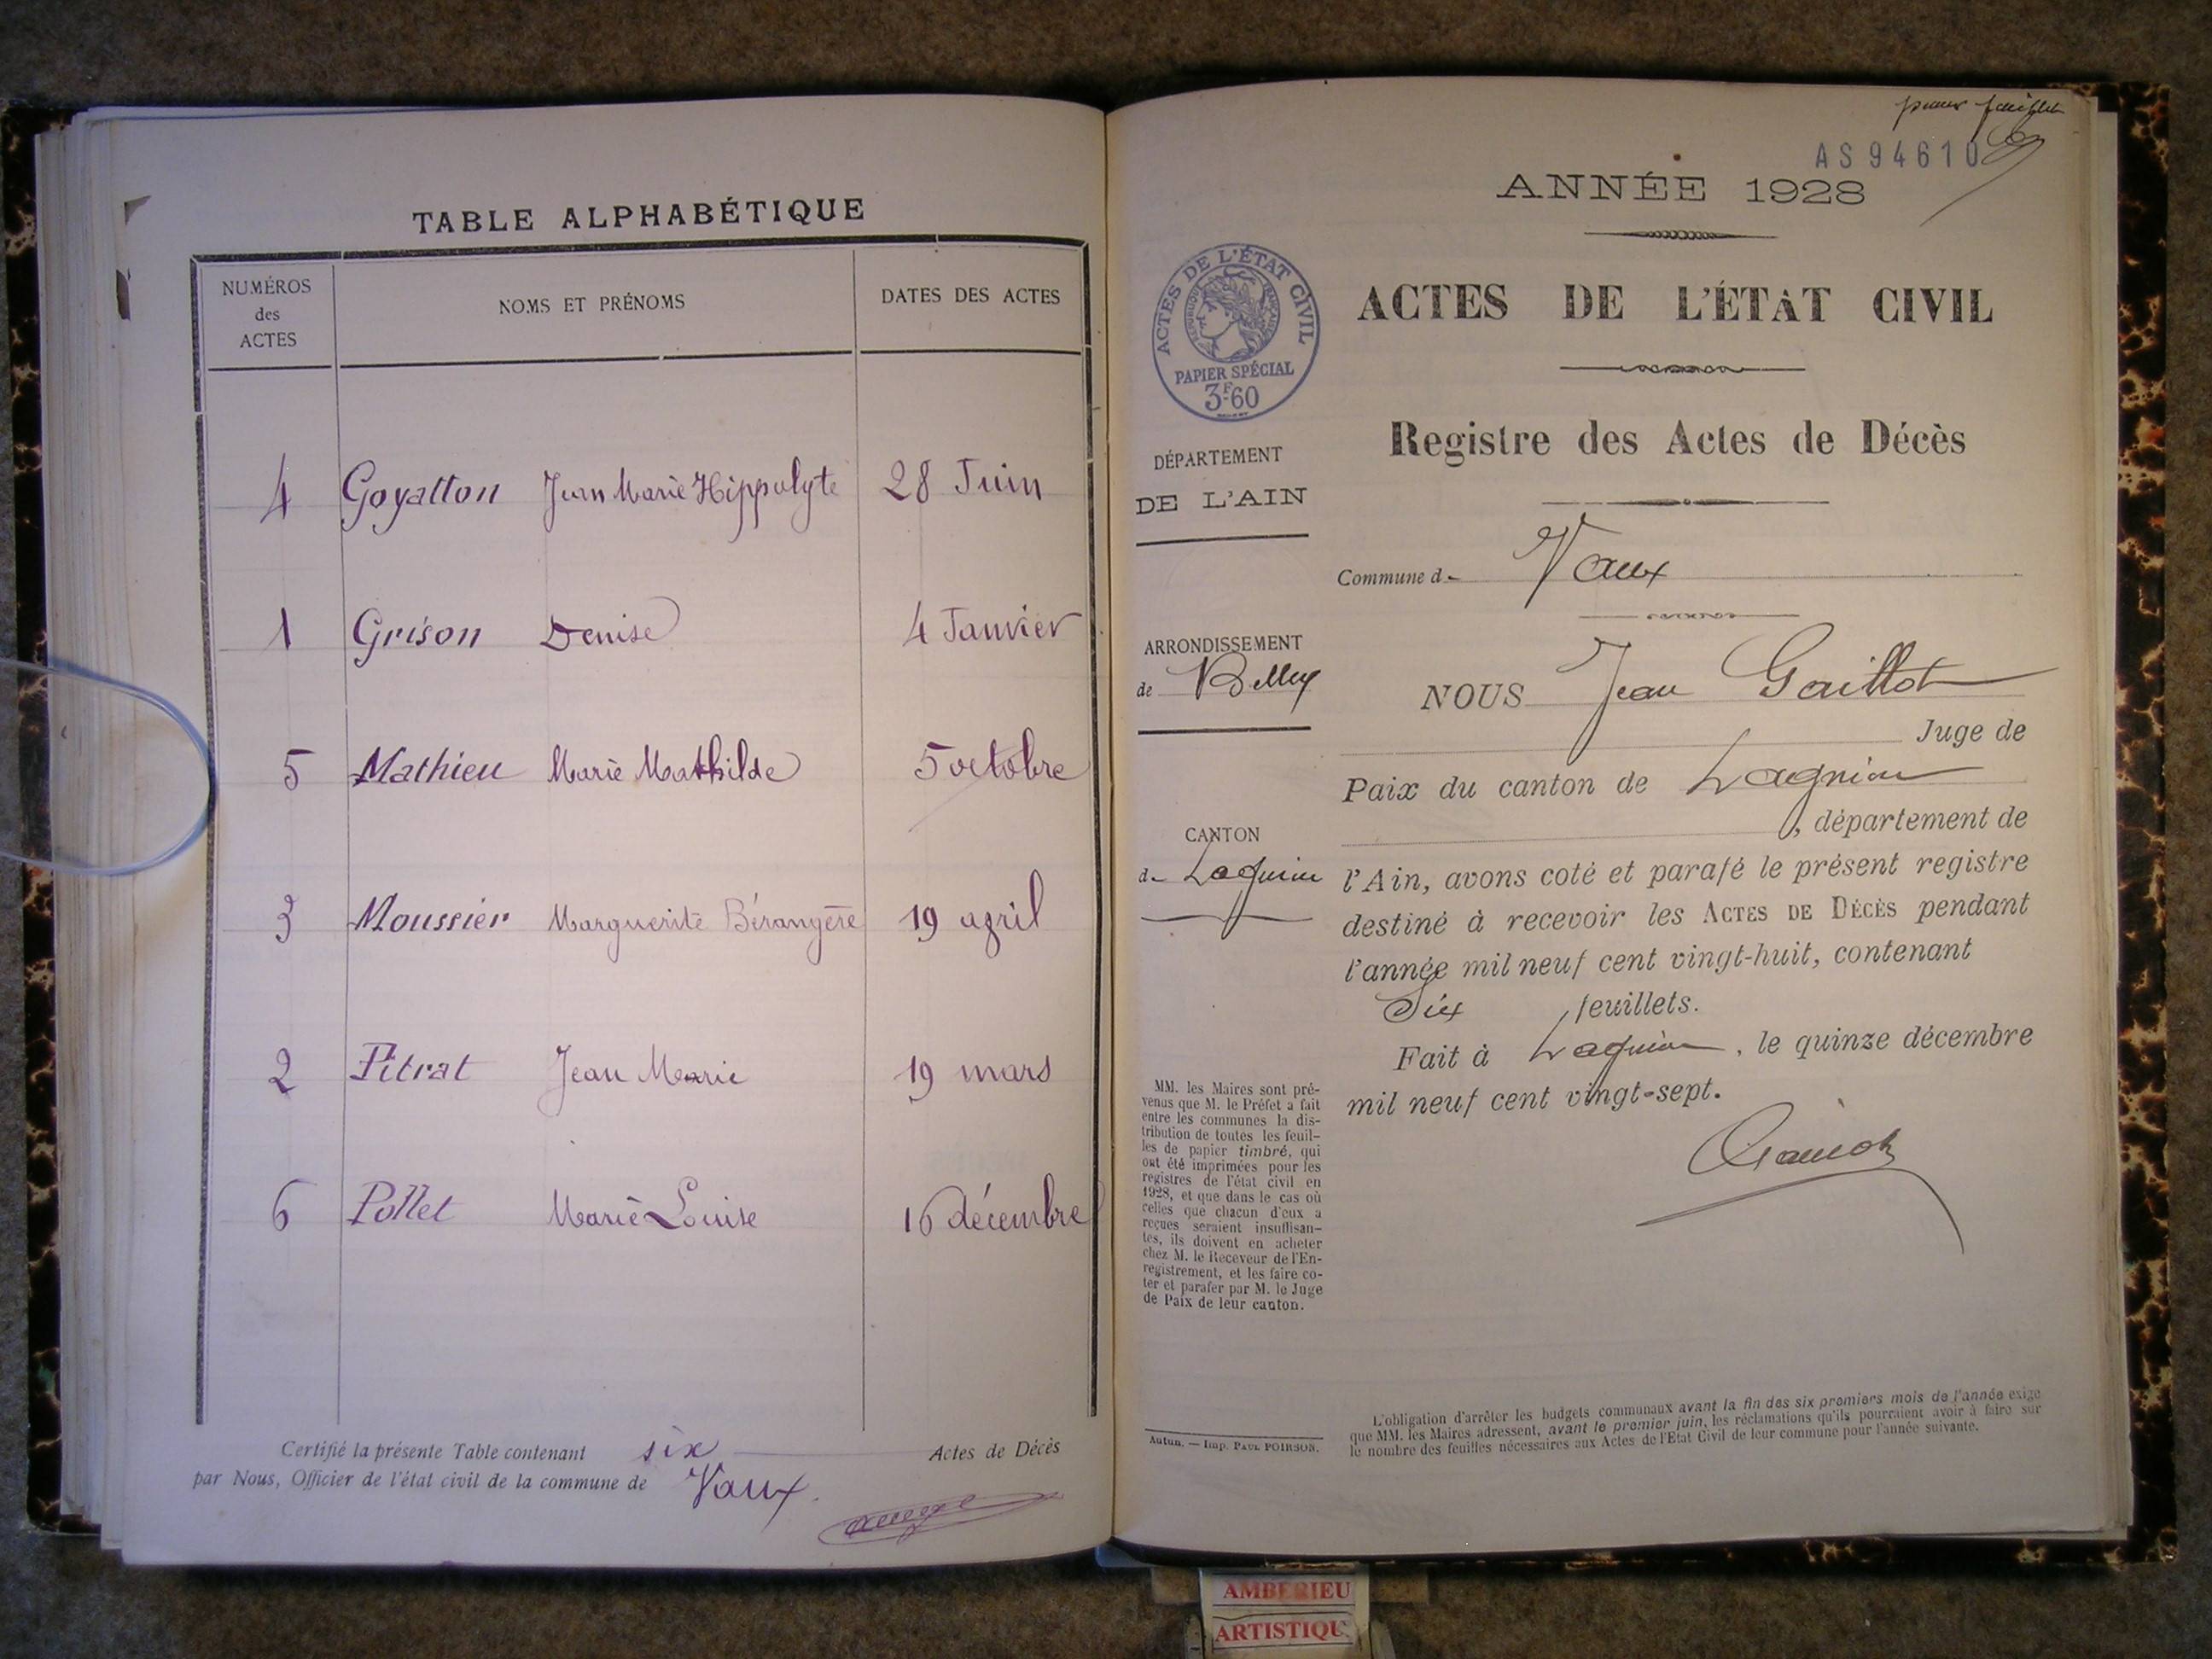 TABLE ALPHABÉTIQUE
NUMÉROS
des
ACTES
NOMS ET PRÉNOMS
DATES DES ACTES
4 Goyatton Jean Marie Hippolyte 28 Juin
1 Grison Denise 4 Janvier
5 Mathieu Marie Mathilde 5 octobre
3 Moussier Marguerite Bérangère 19 avril
2 Pitrat Jean Marie 19 mars
6 Pollet Marie Louise 16 décembre
Certifié la présente Table contenant six Actes de Décès
par Nous, Officier de l'état civil de la commune de Vaux.
AS 94610
ANNÉE 1928
ACTES DE L'ÉTAT CIVIL
RÉPUBLIQUE FRANÇAISE
PAPIER SPÉCIAL
3F60
ACTES DE L'ÉTAT CIVIL
Registre des Actes de Décès
DÉPARTEMENT
DE L'AIN
Commune d- Vaux
ARRONDISSEMENT
de Belley
CANTON
d- Lagnieu
NOUS Jean Gaillot
Juge de
Paix du canton de Lagnieu
, département de
l'Ain, avons coté et parafé le présent registre
destiné à recevoir les ACTES DE DÉCÈS pendant
l'année mil neuf cent vingt-huit, contenant
Six feuillets.
Fait à Lagnieu, le quinze décembre
mil neuf cent vingt-sept.
MM. les Maires sont pré-
venus que M. le Préfet a fait
entre les communes la dis-
tribution de toutes les feuil-
les de papier timbré, qui
ont été imprimées pour les
registres de l'état civil en
1928, et que dans le cas où
celles que chacun d'eux a
reçues seraient insuffisan-
tes, ils doivent en acheter
chez M. le Receveur de l'En-
registrement, et les faire co-
ter et parafer par M. le Juge
de Paix de leur canton.
Autun. — Imp. PAUL POIRSON.
L'obligation d'arrêter les budgets communaux avant la fin des six premiers mois de l'année exige
que MM. les Maires adressent, avant le premier juin, les réclamations qu'ils pourraient avoir à faire sur
le nombre des feuilles nécessaires aux Actes de l'Etat Civil de leur commune pour l'année suivante.
AMBERIEU
ARTISTIQU